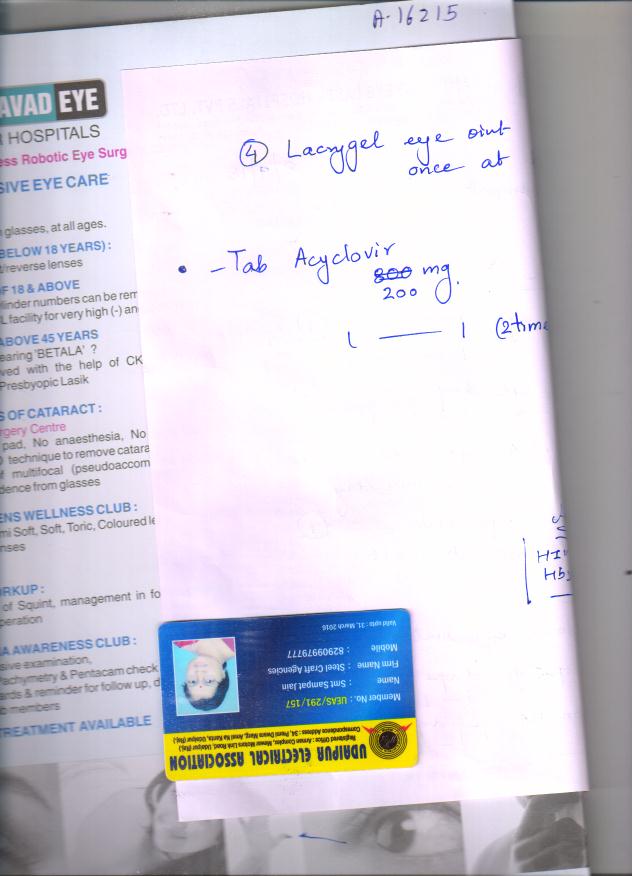 A-16215
AVAD EYE
R HOSPITALS
ess Robotic Eye Surg
SIVE EYE CARE
glasses, at all ages.
BELOW 18 YEARS) :
t/reverse lenses
OF 18 & ABOVE
linder numbers can be rem
L facility for very high (-) an
ABOVE 45 YEARS
earing 'BETALA' ?
ved with the help of CK
Presbyopic Lasik
S OF CATARACT :
rgery Centre
pad, No anaesthesia, No
technique to remove catara
f multifocal (pseudoaccom
dence from glasses
ENS WELLNESS CLUB :
mi Soft, Soft, Toric, Coloured le
nses
RKUP :
of Squint, management in fo
peration
A AWARENESS CLUB :
sive examination,
achymetry & Pentacam check
ards & reminder for follow up, d
b members
TREATMENT AVAILABLE
④ Lacrygel eye oint
once at
• - Tab Acyclovir
800 mg.
200
1 — 1 (2 time
HI
Hb
UDAIPUR ELECTRICAL ASSOCIATION
Registered Office : Arman Complex, Mewar Motors Link Road, Udaipur (Raj.)
Correspondence Address : 34, Swami Marg, Amal Ka Kanta, Udaipur (Raj.)
Member No. : UEAS/291/157
Name : Smt Sampat Jain
Firm Name : Steel Craft Agencies
Mobile : 8290979777
Valid upto : 31, March 2016